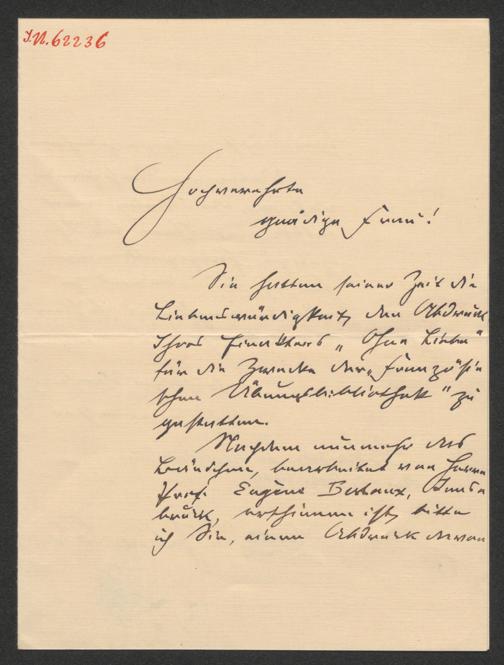 I.N. 62236
Hochverehrte
gnädige Frau!
Sie hatten seiner Zeit die
Liebenswürdigkeit, den Abdruck
Ihres Einakters „Ohne Liebe"
für die Zwecke der „Französi
schen Übungsbibliothek" zu
gestatten.
Nachdem nunmehr das
Bändchen, bearbeitet von Herrn
Prof. Eugène Bestaux, Inns
bruck, erschienen ist, bitte
ich Sie, einen Abdruck davon